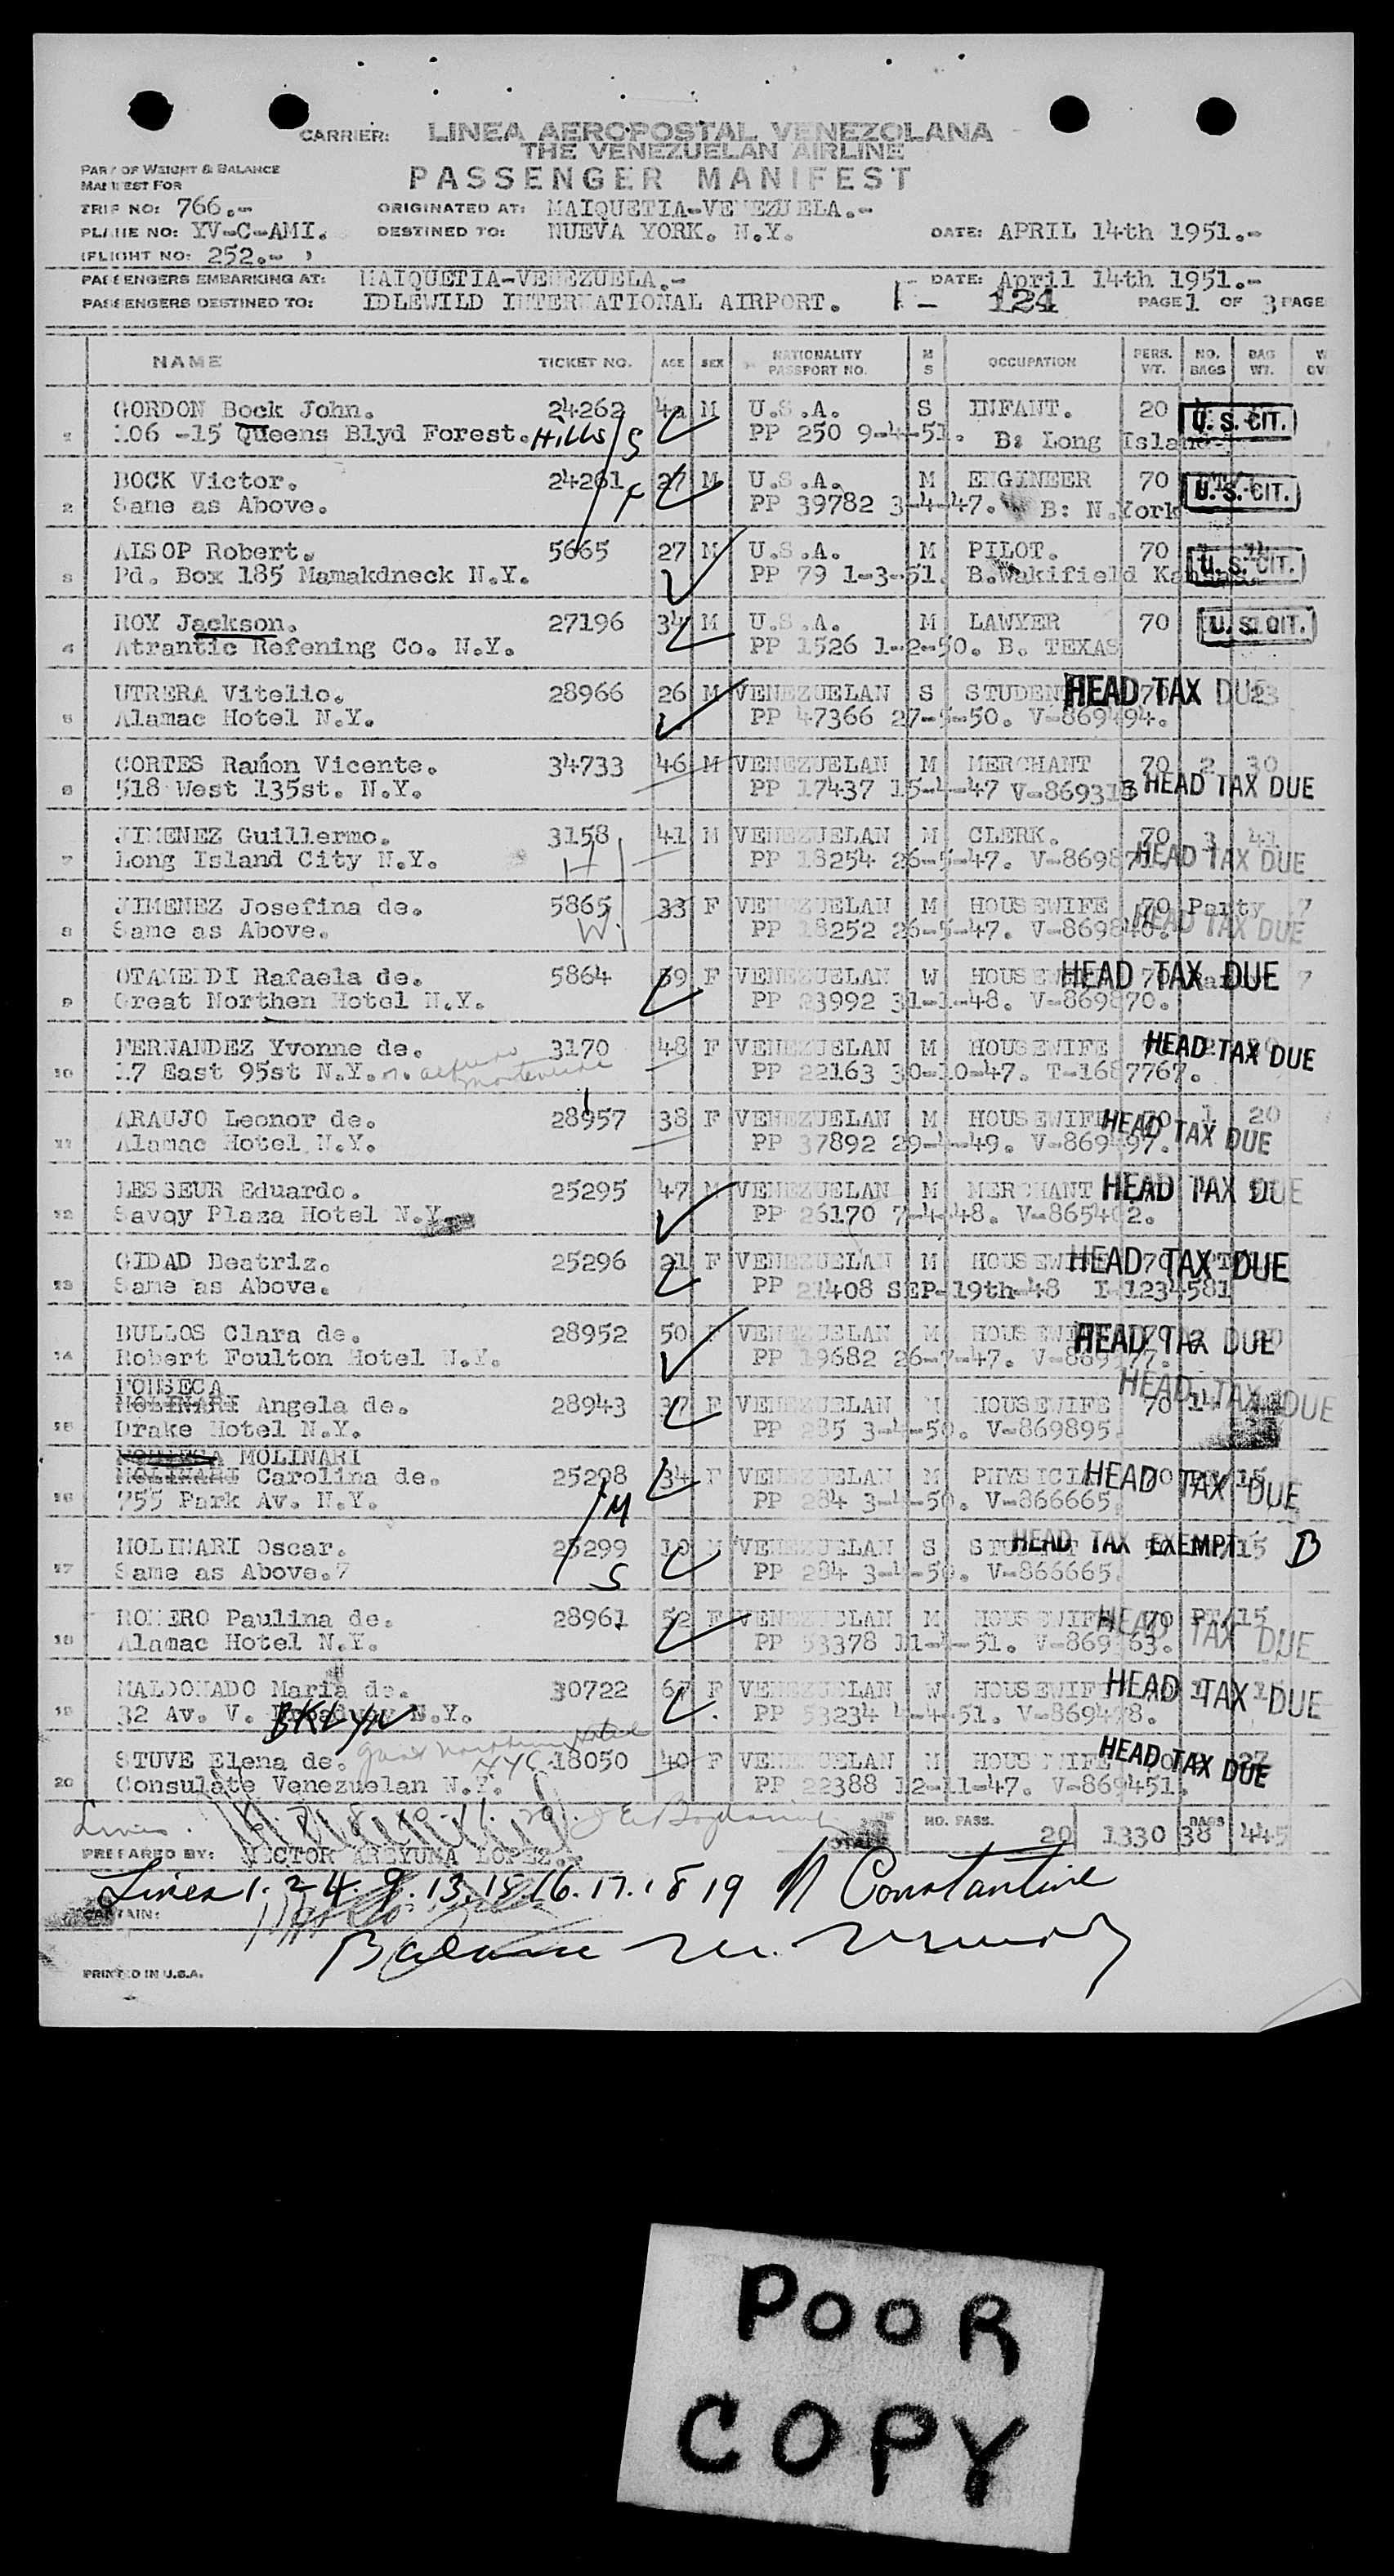 CARRIER: LINEA AEROPOSTAL VENEZOLANA
THE VENEZUELAN AIRLINE
PASSENGER MANIFEST
PART OF WEIGHT & BALANCE
MANIFEST FOR
TRIP NO: 766.- ORIGINATED AT: MAIQUETIA-VENEZUELA.-
PLANE NO: YV-C-AMI. DESTINED TO: NUEVA YORK. N.Y. DATE: APRIL 14th 1951.-
(FLIGHT NO: 252.- )
PASSENGERS EMBARKING AT: MAIQUETIA-VENEZUELA.- DATE: April 14th 1951.-
PASSENGERS DESTINED TO: IDLEWILD INTERNATIONAL AIRPORT. 124 PAGE 1 OF 3 PAGE
NAME TICKET NO. AGE SEX NATIONALITY PASSPORT NO. M S OCCUPATION PERS. WT. NO. BAGS BAG WT.
1 GORDON Bock John. 24262 M U.S.A. S INFANT. 20 U.S. CIT.
106 -15 Queens Blyd Forest. Hills S PP 250 9-4-51. B: Long Island
2 BOCK Victor. 24261 27 M U.S.A. M ENGINEER 70 U.S. CIT.
Same as Above. PP 39782 3-4-47. B: N.York
3 AISOP Robert. 5665 27 M U.S.A. M PILOT. 70 U.S. CIT.
Pd. Box 185 Mamakdneck N.Y. PP 79 1-3-51. B.Wakifield Kansas.
4 ROY Jackson. 27196 34 M U.S.A. M LAWYER 70 U.S. CIT.
Atrantic Refening Co. N.Y. PP 1526 1-2-50. B. TEXAS
5 UTRERA Vitelio. 28966 26 M VENEZUELAN S STUDENT HEAD TAX DUE 23
Alamac Hotel N.Y. PP 47366 27-5-50. V-869494.
6 CORTES Ramón Vicente. 34733 46 M VENEZUELAN M MERCHANT 70 2 30
518 West 135st. N.Y. PP 17437 15-4-47 V-869313 HEAD TAX DUE
7 JIMENEZ Guillermo. 3158 41 M VENEZUELAN M CLERK. 70 3 41
Long Island City N.Y. H PP 18254 26-5-47. V-869871. HEAD TAX DUE
8 JIMENEZ Josefina de. 5865 33 F VENEZUELAN M HOUSEWIFE 70 Party 7
Same as Above. W. PP 18252 26-5-47. V-869840. HEAD TAX DUE
9 OTAMENDI Rafaela de. 5864 59 F VENEZUELAN W HEAD TAX DUE 7
Great Northen Hotel N.Y. PP 23992 31-1-48. V-869870.
10 FERNANDEZ Yvonne de. 3170 48 F VENEZUELAN M HOUSEWIFE HEAD TAX DUE
17 East 95st N.Y. PP 22163 30-10-47. T-1687767.
11 ARAUJO Leonor de. 28957 38 F VENEZUELAN M HOUSEWIFE 70 1 20
Alamac Hotel N.Y. PP 37892 29-4-49. V-869497. HEAD TAX DUE
12 LESSEUR Eduardo. 25295 47 M VENEZUELAN M MERCHANT HEAD TAX DUE
Savoy Plaza Hotel N.Y. PP 26170 7-4-48. V-865402.
13 GIDAD Beatriz. 25296 21 F VENEZUELAN M HOUSEWIFE HEAD TAX DUE
Same as Above. PP 21408 SEP-19th-48 I-1234581
14 BULLOS Clara de. 28952 50 F VENEZUELAN M HOUSEWIFE HEAD TAX DUE
Robert Foulton Hotel N.Y. PP 19682 26-7-47.
FONSECA HEAD TAX DUE
15 MOLINARI Angela de. 28943 37 F VENEZUELAN HOUSEWIFE 70
Drake Hotel N.Y. PP 285 3-4-50. V-869895.
FONSECA MOLINARI
16 MOLINARI Carolina de. 25298 34 F VENEZUELAN M PHYSICIAN HEAD TAX DUE 15
755 Park Av. N.Y. M PP 284 3-4-50. V-866665.
17 MOLINARI Oscar. 25299 10 M VENEZUELAN S STUDENT HEAD TAX EXEMPT 15 B
Same as Above. S PP 284 3-4-50. V-866665.
18 ROMERO Paulina de. 28961 52 F VENEZUELAN M HOUSEWIFE 70 PT/15
Alamac Hotel N.Y. PP 53378 11-4-51. HEAD TAX DUE
19 MALDONADO Maria de. 30722 67 F VENEZUELAN W HOUSEWIFE HEAD TAX DUE
32 Av. V. Broadway BKLYN N.Y. PP 53234 4-4-51. V-869478.
20 STUVE Elena de. Great Northern Hotel NYC 18050 40 F VENEZUELAN M HOUSEWIFE HEAD TAX DUE 27
Consulate Venezuelan N.Y. PP 22388 12-11-47. V-869451.
Lines. NO. PASS. 20 1330 BAGS 38 445
PREPARED BY: VICTOR AREYUNA LOPEZ.
Lines 1. 2 4. 9. 13. 15. 16. 17. 18 19 N Constantine
CAPTAIN:
Balance
PRINTED IN U.S.A.
POOR
COPY